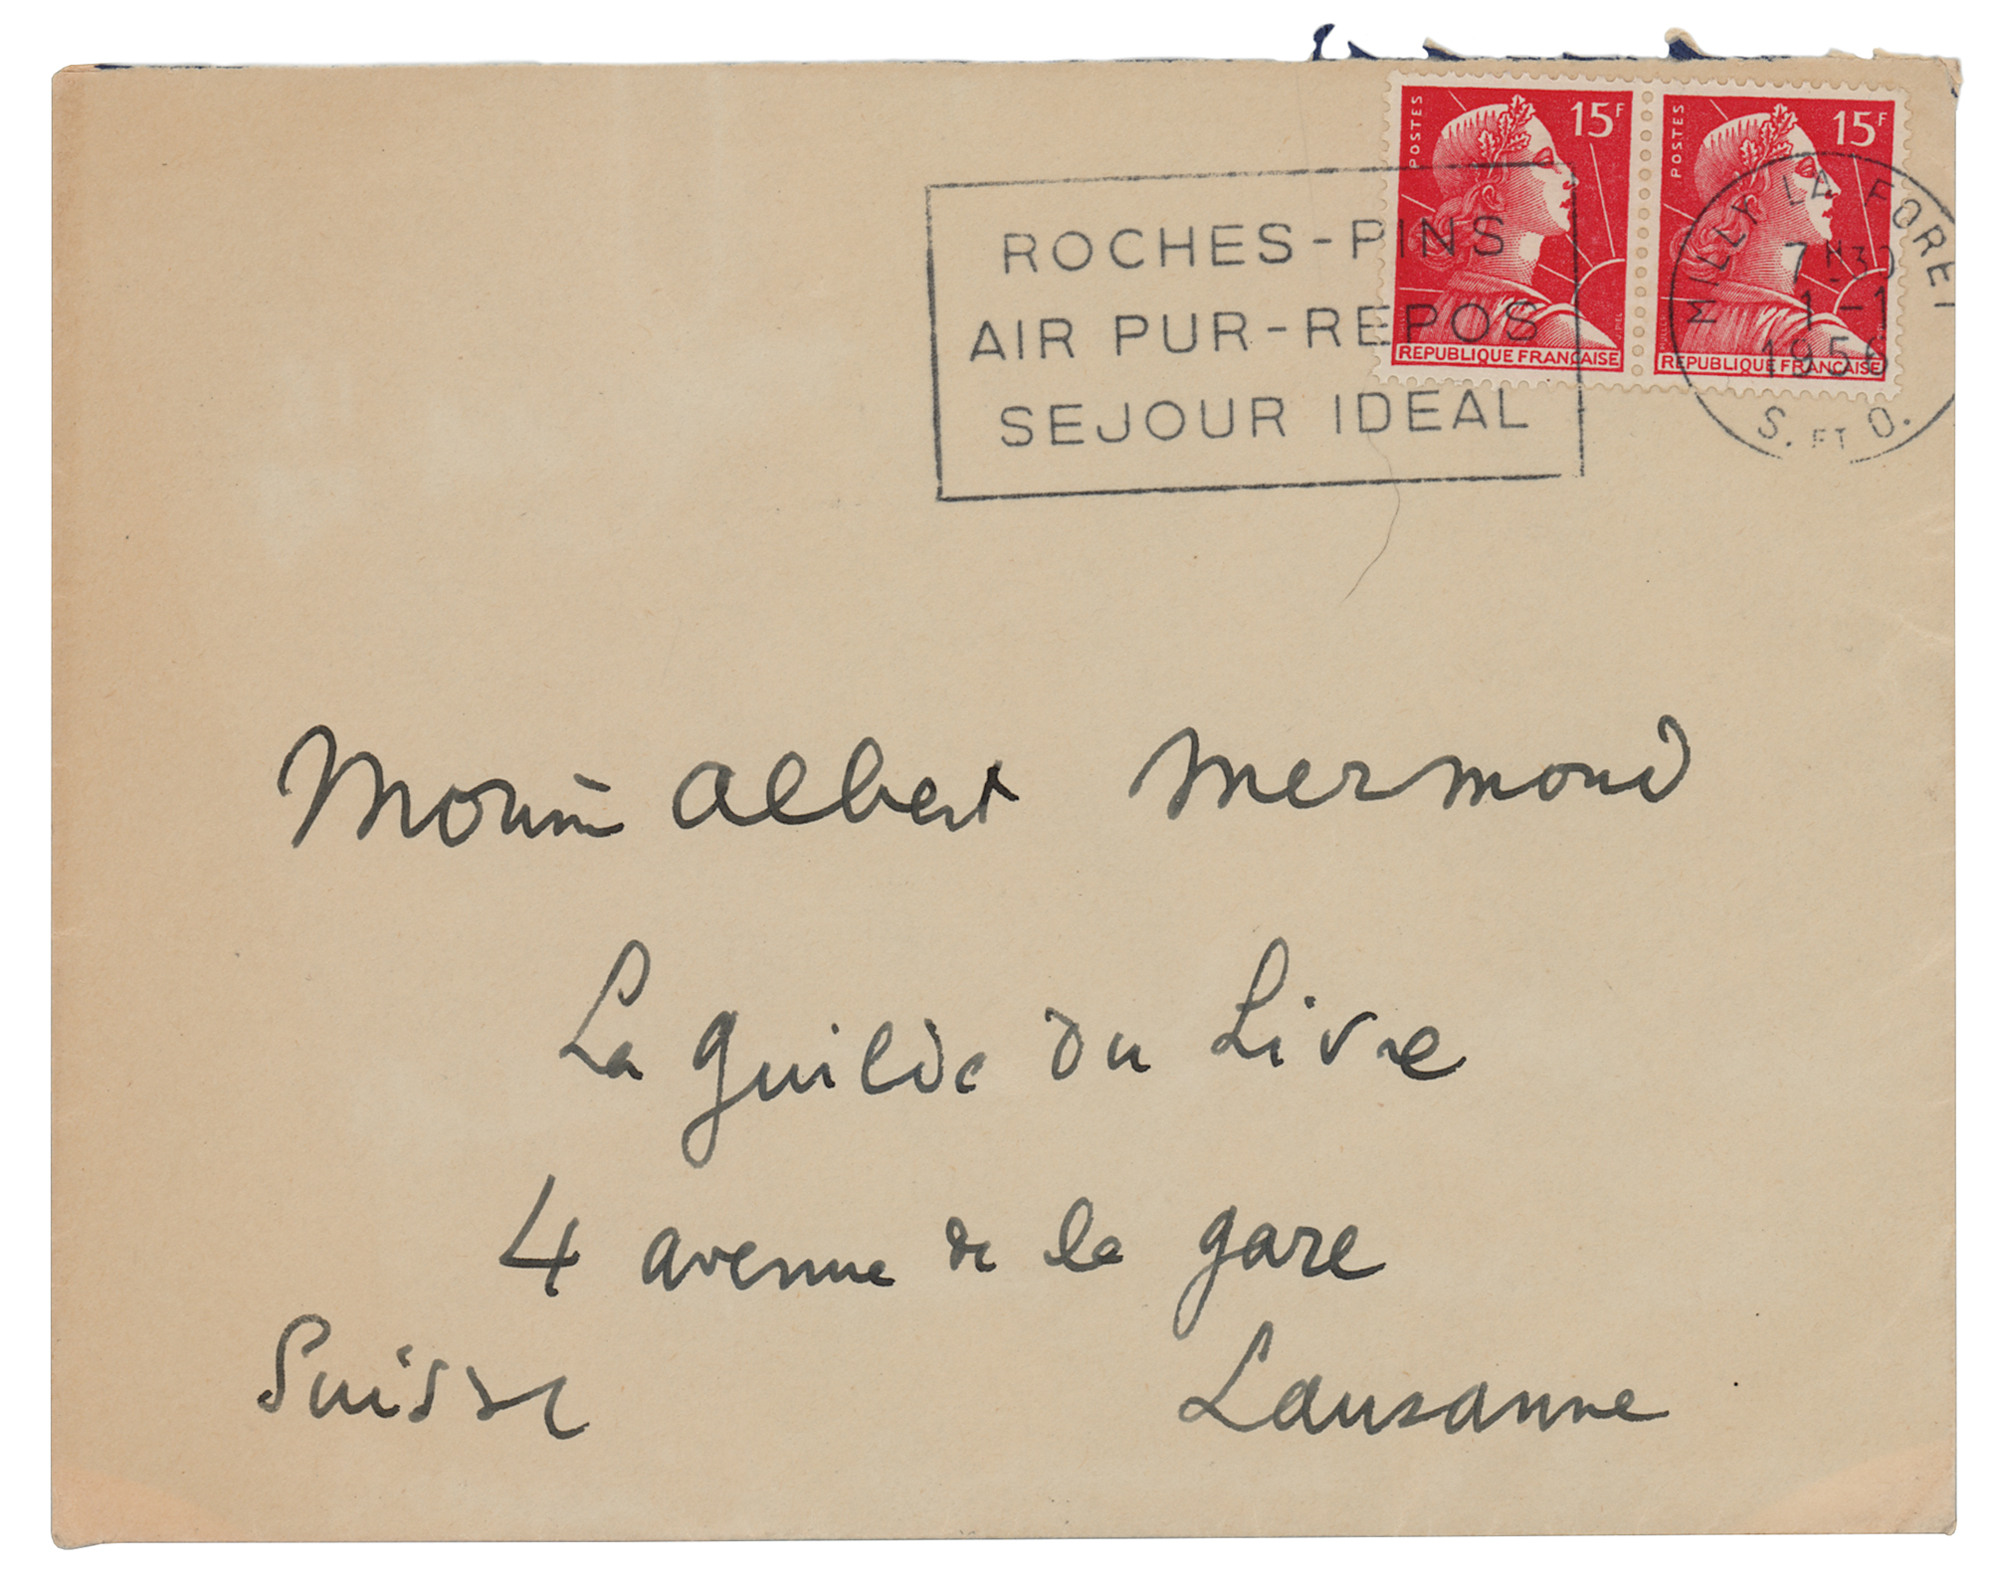 POSTES 15F POSTES 15F
REPUBLIQUE FRANÇAISE REPUBLIQUE FRANÇAISE
ROCHES-PINS
AIR PUR-REPOS
SEJOUR IDEAL
MILLY LA FORET
7H30
1-1
1956
S. ET O.
Monsieur Albert Mermoud
La Guilde du Livre
4 avenue de la gare
Suisse Lausanne